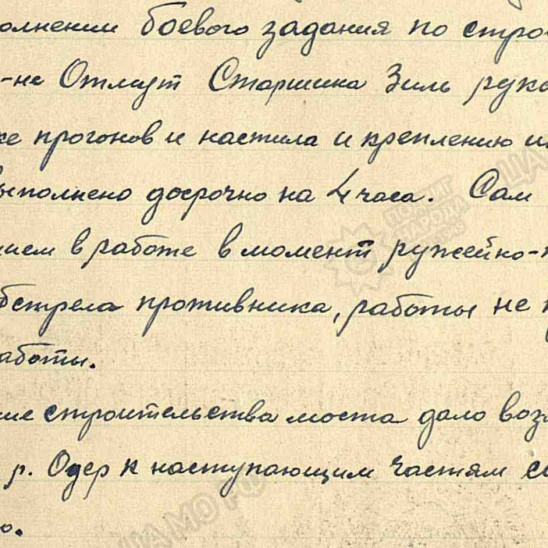 олнении боевого задания по стро
-не Отмут Старшина Зиль руко
ке прогонов и настила и креплению их
выполнено досрочно на 4 часа. Сам
нием в работе в момент ружейно-п
бстрела противника, работы не п
аботы.
ие строительства моста дало воз
р. Одер к наступающим частям с
о.
ПАМЯТЬ НАРОДА
ЦАМО РФ